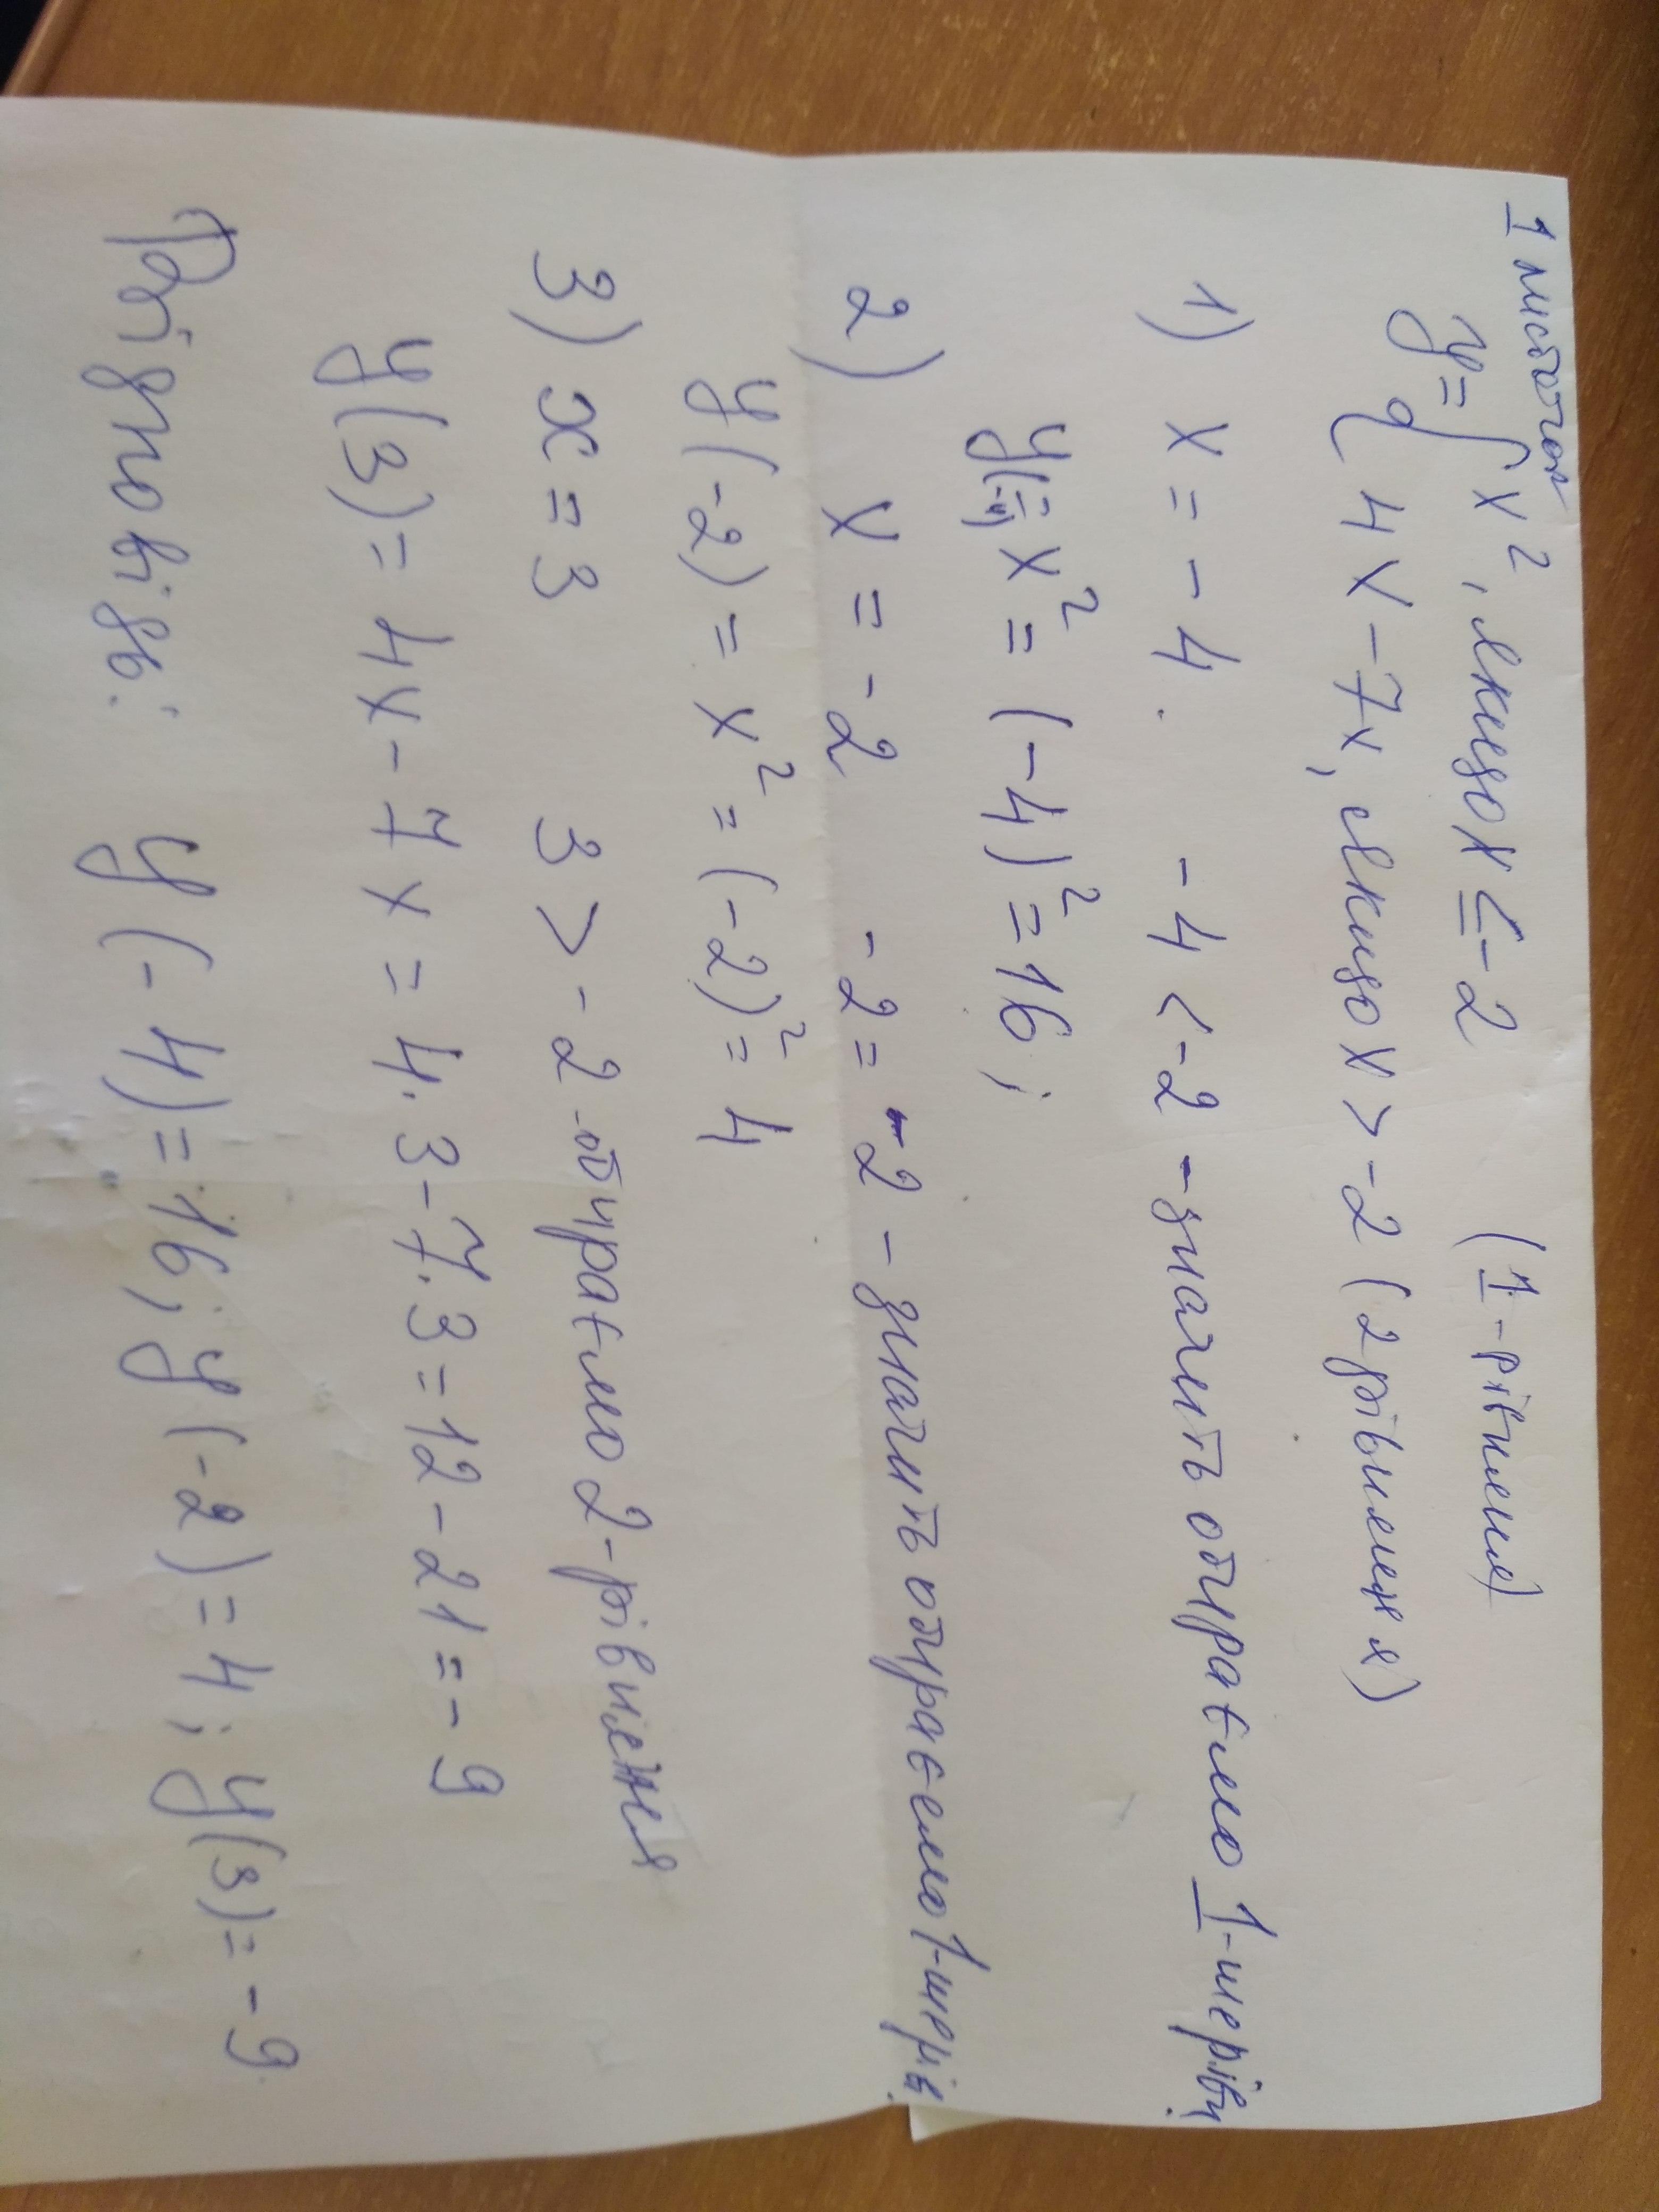 1 листочок
y = { x², якщо x ≤ -2 (1 - рівненя)
4x - 7x, якщо x > -2 (2 рівненя)
1) x = -4. -4 < -2 - значить обираємо 1-ше рівн.
y(-4) = x² = (-4)² = 16;
2) x = -2 -2 = -2 - значить обираємо 1-ше рів.
y(-2) = x² = (-2)² = 4
3) x = 3 3 > -2 обираємо 2-рівнення
y(3) = 4x - 7x = 4·3 - 7·3 = 12 - 21 = -9
Відповідь: y(-4) = 16; y(-2) = 4; y(3) = -9